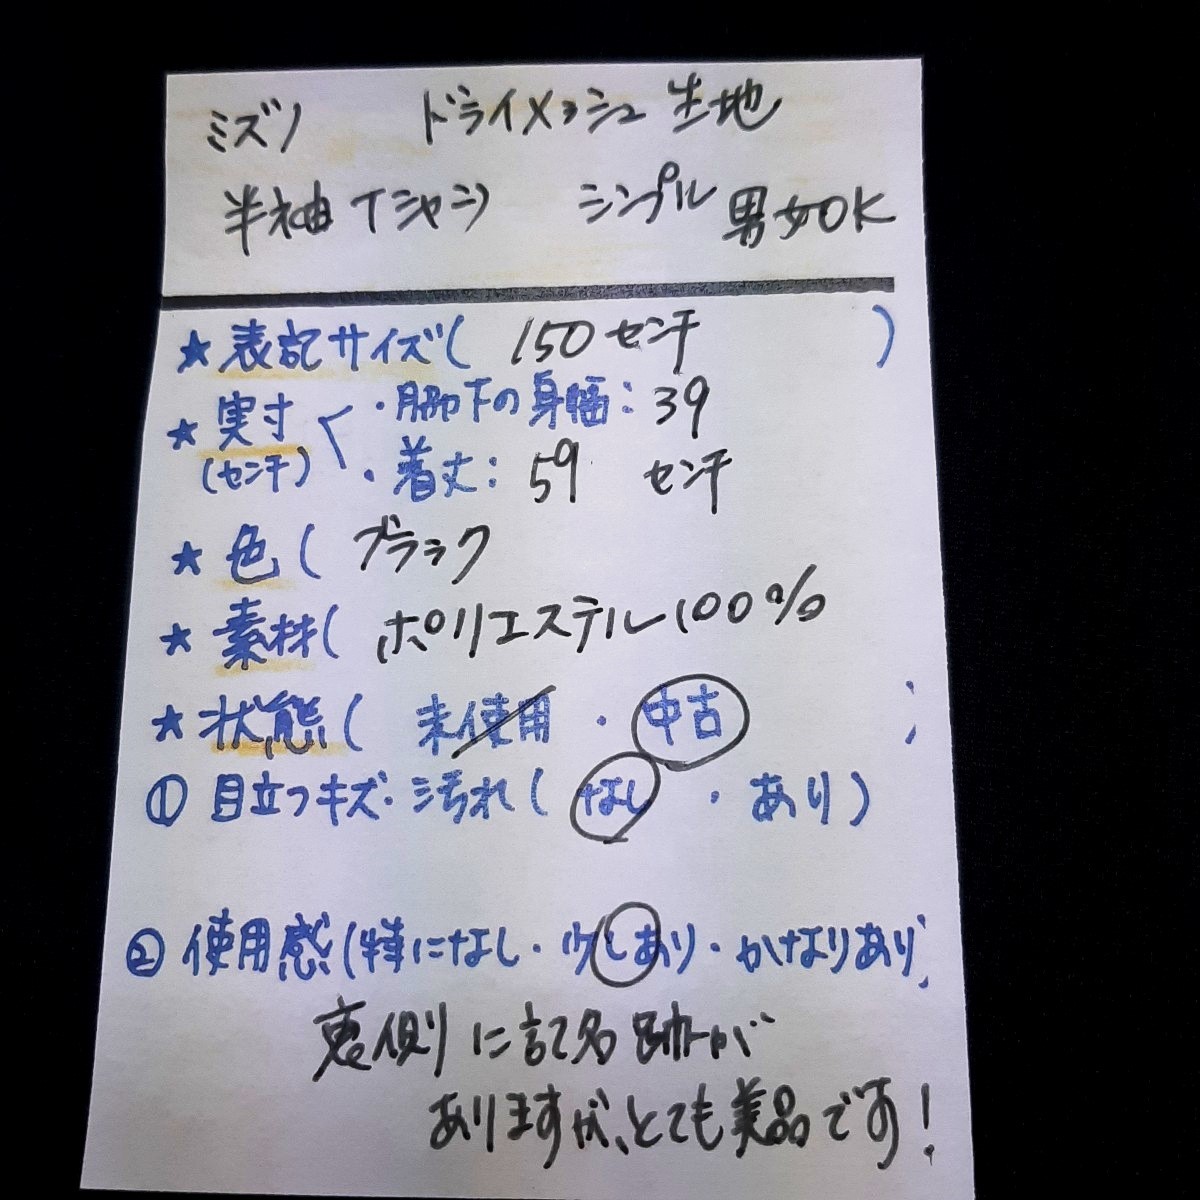 ミズノ ドライメッシュ生地
半袖Tシャツ シンプル 男女OK
★表記サイズ( 150センチ )
★実寸(センチ) く ・脇下の身幅: 39
・着丈: 59 センチ
★色( ブラック
★素材( ポリエステル100%
★状態( 未使用 ・ 中古 )
① 目立つキズ・汚れ( なし ・ あり)
② 使用感(特になし・少しあり・かなりあり)
裏側に記名跡が
ありますが、とても美品です!